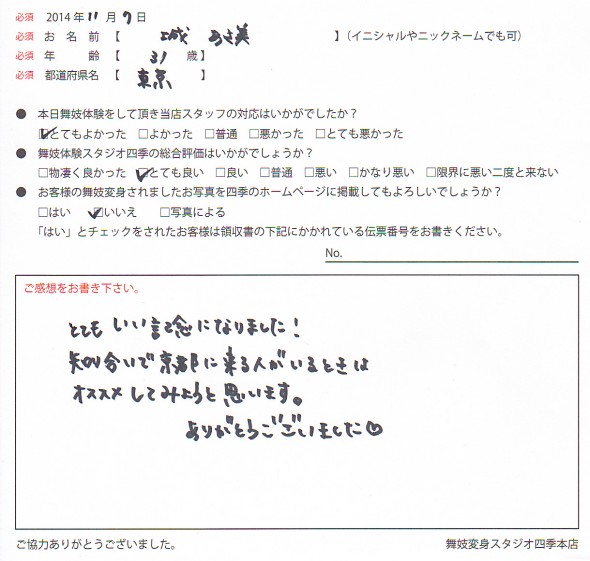 必須 2014年11月9日
必須 お名前【 城 あさ美 】(イニシャルやニックネームでも可)
必須 年齢【 31 歳】
必須 都道府県名【 東京 】
● 本日舞妓体験をして頂き当店スタッフの対応はいかがでしたか?
☑とてもよかった □よかった □普通 □悪かった □とても悪かった
● 舞妓体験スタジオ四季の総合評価はいかがでしょうか?
□物凄く良かった ☑とても良い □良い □普通 □悪い □かなり悪い □限界に悪い二度と来ない
● お客様の舞妓変身されましたお写真を四季のホームページに掲載してもよろしいでしょうか?
□はい ☑いいえ □写真による
「はい」とチェックをされたお客様は領収書の下記にかかれている伝票番号をお書きください。
No.
ご感想をお書き下さい。
とても いい記念になりました!
知り合いで京都に来る人がいるときは
オススメしてみようと思います。
ありがとうございました♡
ご協力ありがとうございました。 舞妓変身スタジオ四季本店